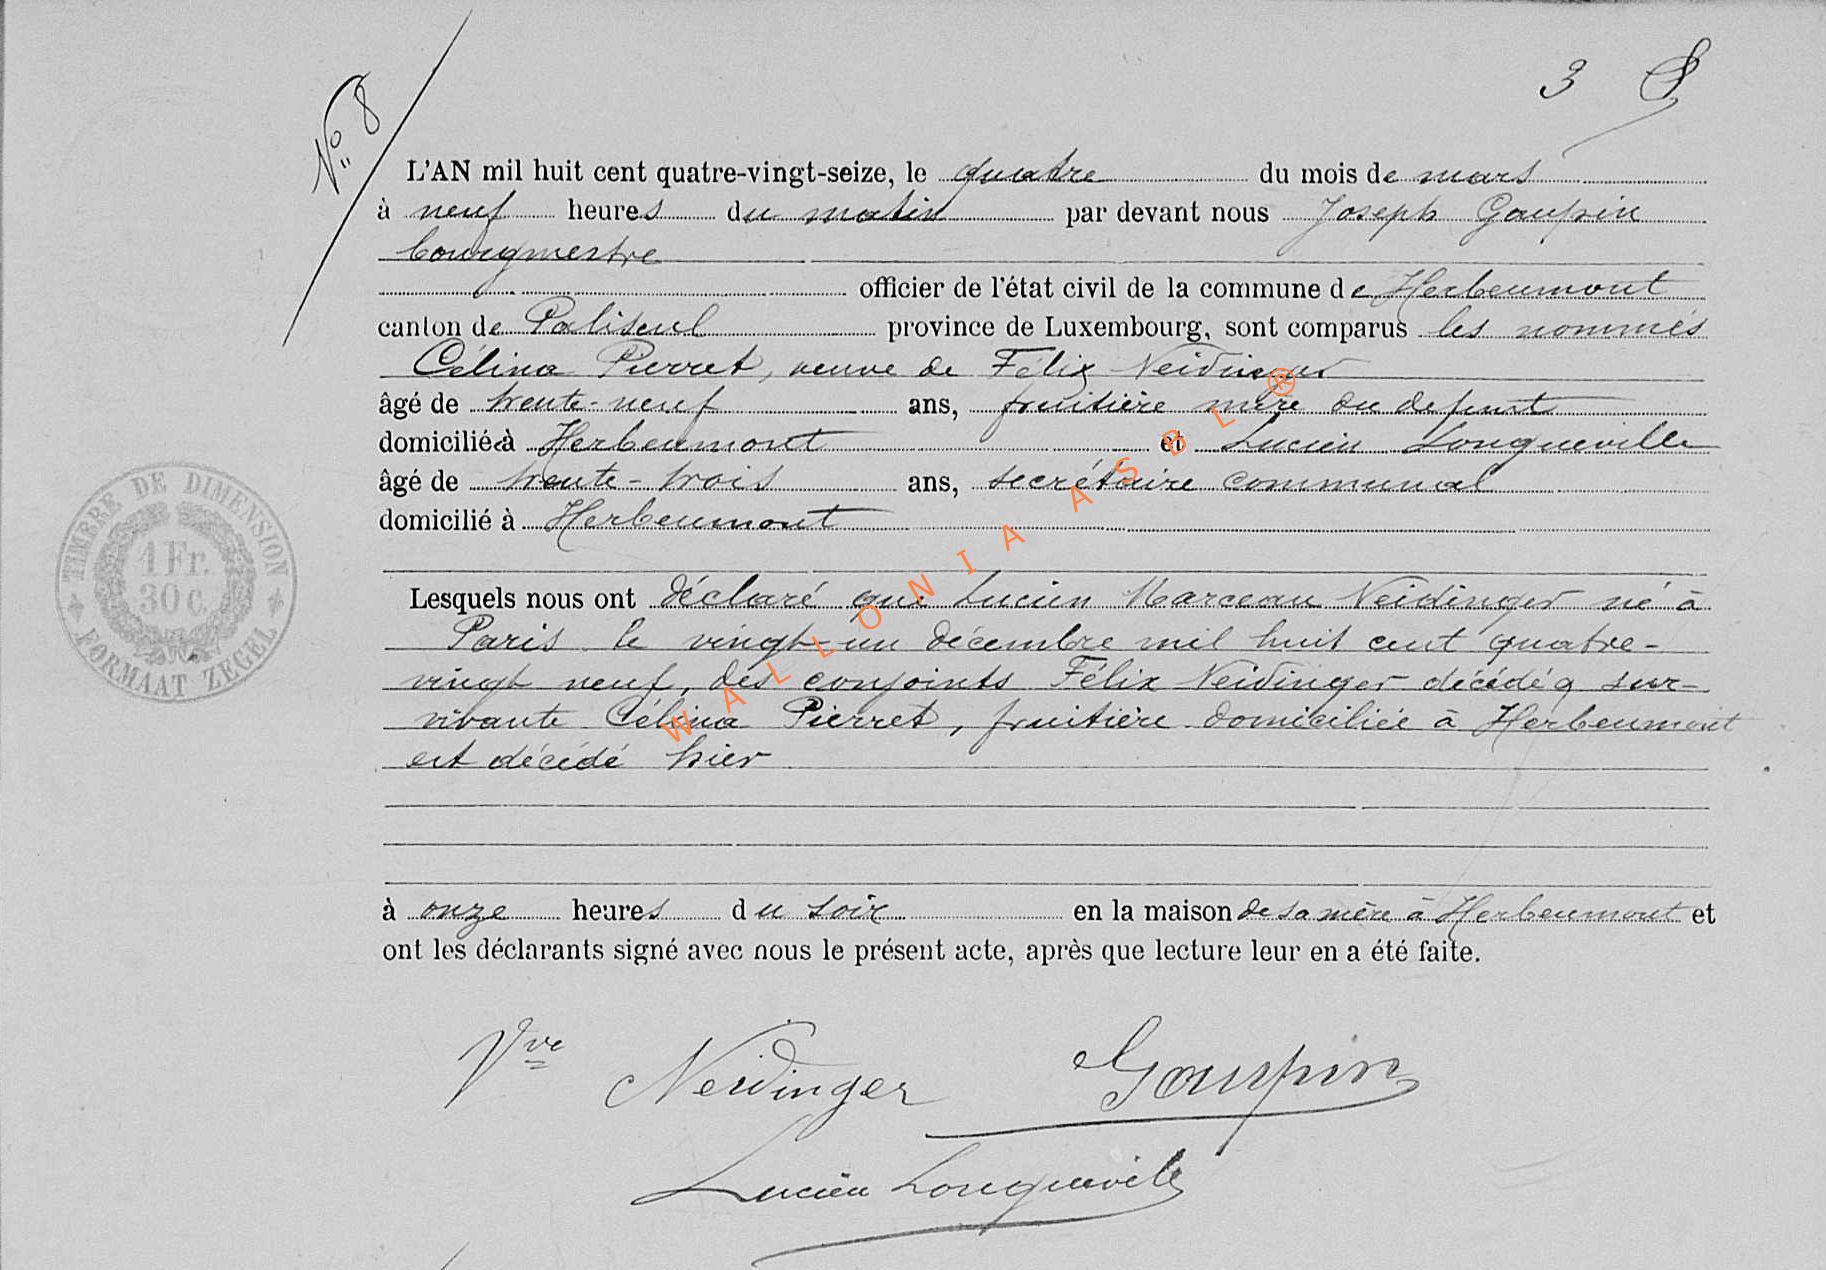 3
N° 8
L'AN mil huit cent quatre-vingt-seize, le quatre du mois de mars
à neuf heures du matin par devant nous Joseph Goupin
bourgmestre
officier de l'état civil de la commune de Herbeumont
canton de Paliseul province de Luxembourg, sont comparus les nommés
Célina Pierret, veuve de Félix Neidinger
âgé de trente-neuf ans, fruitière mère du defunt
domiciliée à Herbeumont et Lucien Longueville
âgé de trente-trois ans, secrétaire communal
domicilié à Herbeumont
Lesquels nous ont déclaré que Lucien Marceau Neidinger né à
Paris le vingt-un décembre mil huit cent quatre-
vingt neuf, des conjoints Félix Neidinger décédé & sur-
vivante Célina Pierret, fruitière domiciliée à Herbeumont
est décédé hier
à onze heures du soir en la maison de sa mère à Herbeumont et
ont les déclarants signé avec nous le présent acte, après que lecture leur en a été faite.
Vve Neidinger Goupin
Lucien Longueville
TIMBRE DE DIMENSION
1 Fr.
30 c.
FORMAAT ZEGEL
WALLONIA ASBL ®